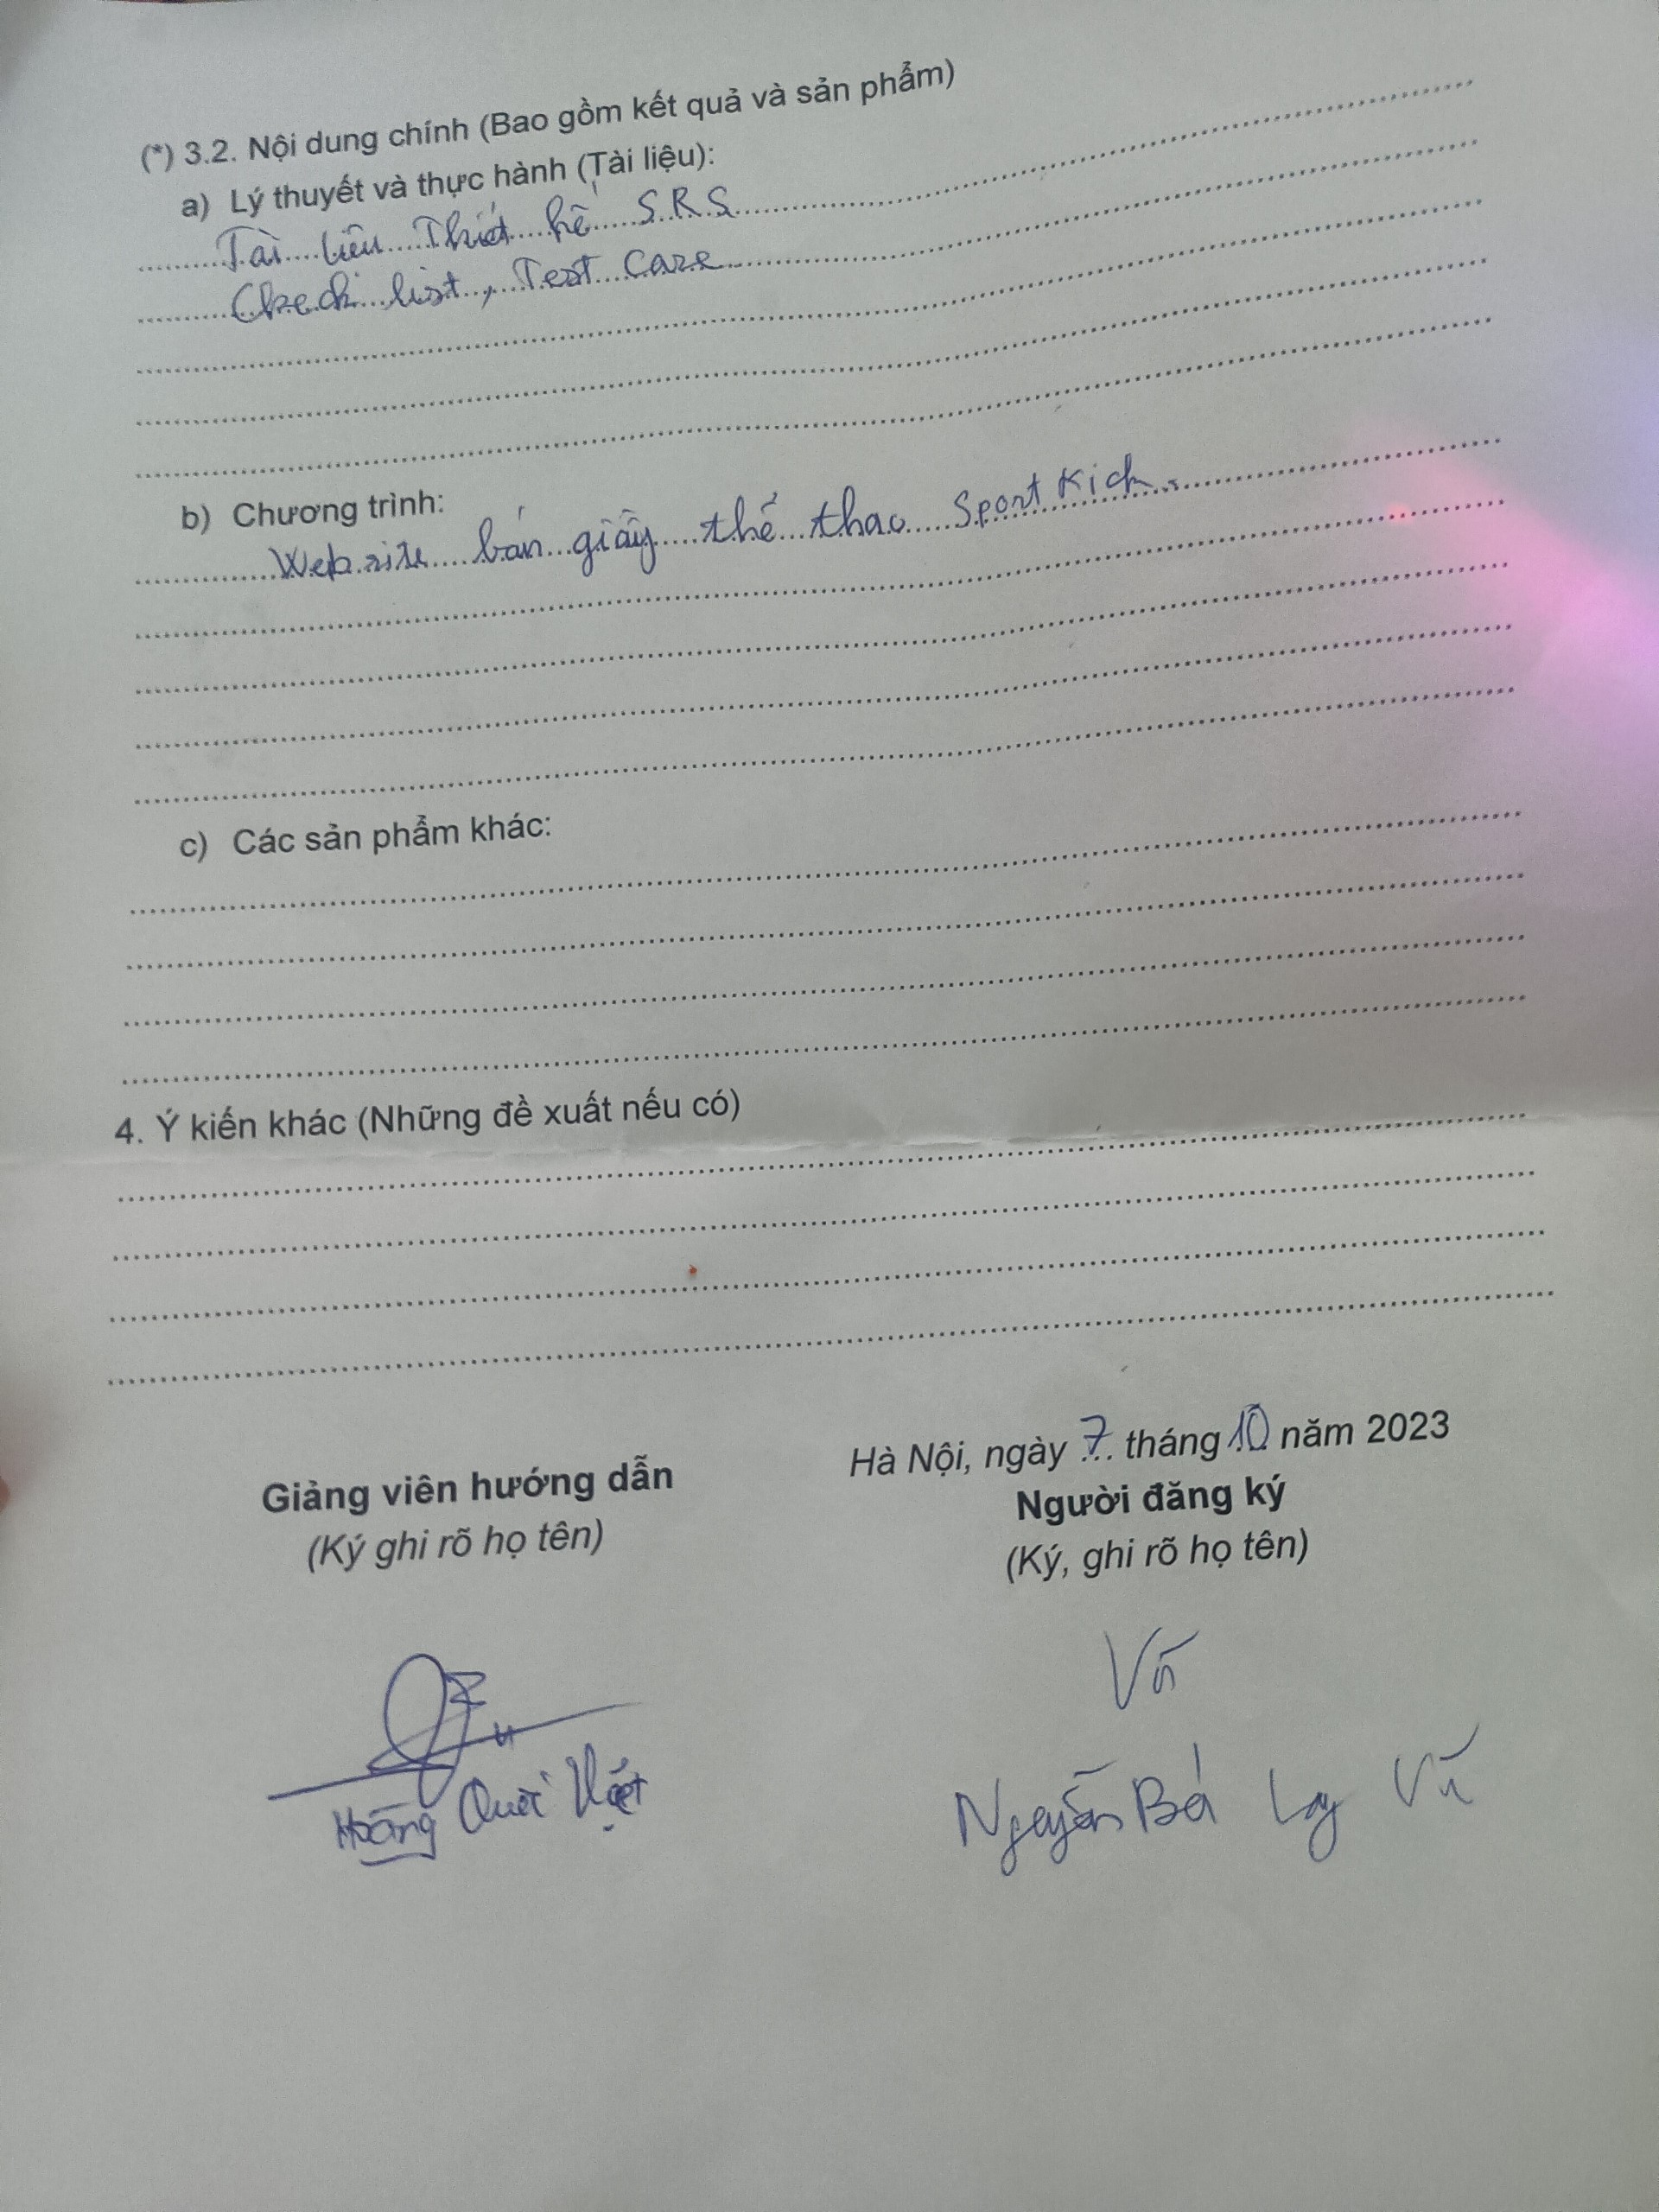 (*) 3.2. Nội dung chính (Bao gồm kết quả và sản phẩm)
a) Lý thuyết và thực hành (Tài liệu):
Tài liệu Thiết kế SRS
Check list, Test Case
b) Chương trình:
Website bán giầy thể thao Sport Kick.
c) Các sản phẩm khác:
4. Ý kiến khác (Những đề xuất nếu có)
Hà Nội, ngày 7 tháng 10 năm 2023
Giảng viên hướng dẫn
Người đăng ký
(Ký ghi rõ họ tên)
(Ký, ghi rõ họ tên)
Vũ
Hoàng Việt
Nguyễn Bá Vũ